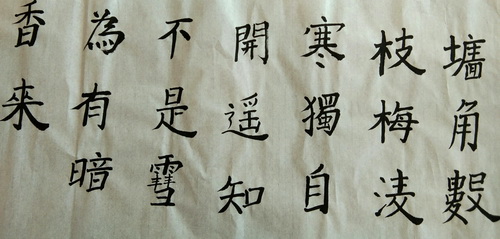 墻角數
枝梅凌
寒獨自
開遥知
不是雪
為有暗
香来